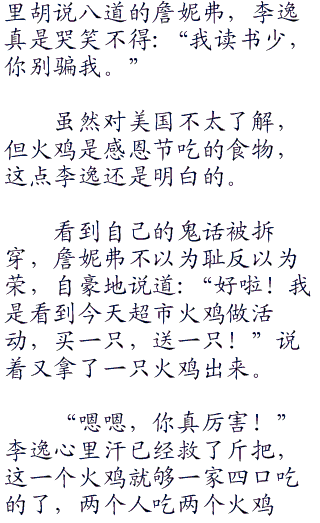 里胡说八道的詹妮弗，李逸
真是哭笑不得：“我读书少，
你别骗我。”
虽然对美国不太了解，
但火鸡是感恩节吃的食物，
这点李逸还是明白的。
看到自己的鬼话被拆
穿，詹妮弗不以为耻反以为
荣，自豪地说道：“好啦！我
是看到今天超市火鸡做活
动，买一只，送一只！”说
着又拿了一只火鸡出来。
“嗯嗯，你真厉害！”
李逸心里汗已经救了斤把，
这一个火鸡就够一家四口吃
的了，两个人吃两个火鸡